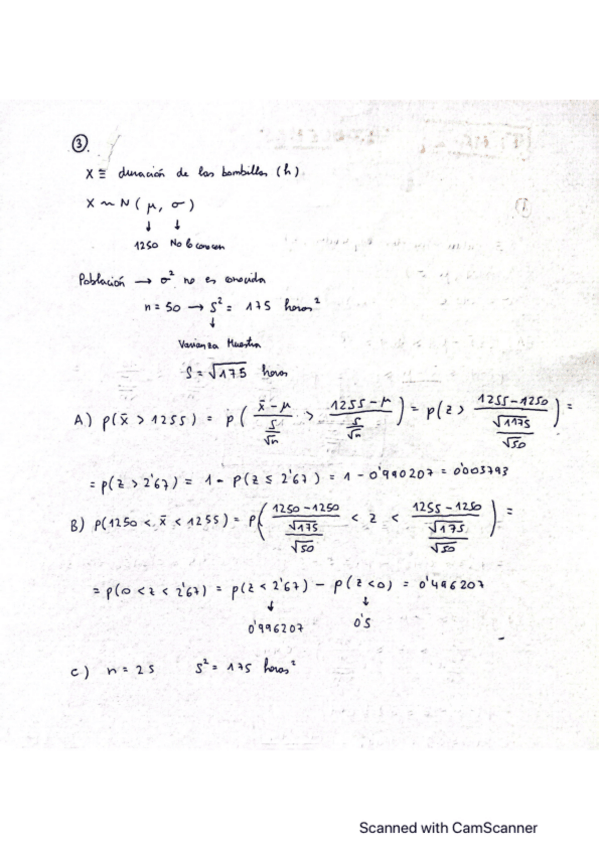 3.
X ≡ duración de las bombillas (h).
X ~ N ( μ, σ )
↓ ↓
1250 No lo conocen
Población → σ² no es conocida
n = 50 → S² = 175 horas²
↓
Varianza Muestra
S = √175 horas
A) p(x̄ > 1255) = p( (x̄ - μ)/(s/√n) > (1255 - μ)/(s/√n) ) = p(z > (1255-1250)/(√1175/√50)) =
= p(z > 2'67) = 1 - p(z ≤ 2'67) = 1 - 0'990207 = 0'003793
B) p(1250 < x̄ < 1255) = p( (1250-1250)/(√175/√50) < z < (1255-1250)/(√175/√50) ) =
= p(0 < z < 2'67) = p(z < 2'67) - p(z < 0) = 0'496207
↓ ↓
0'996207 0'5
C) n = 25 S² = 175 horas²
Scanned with CamScanner